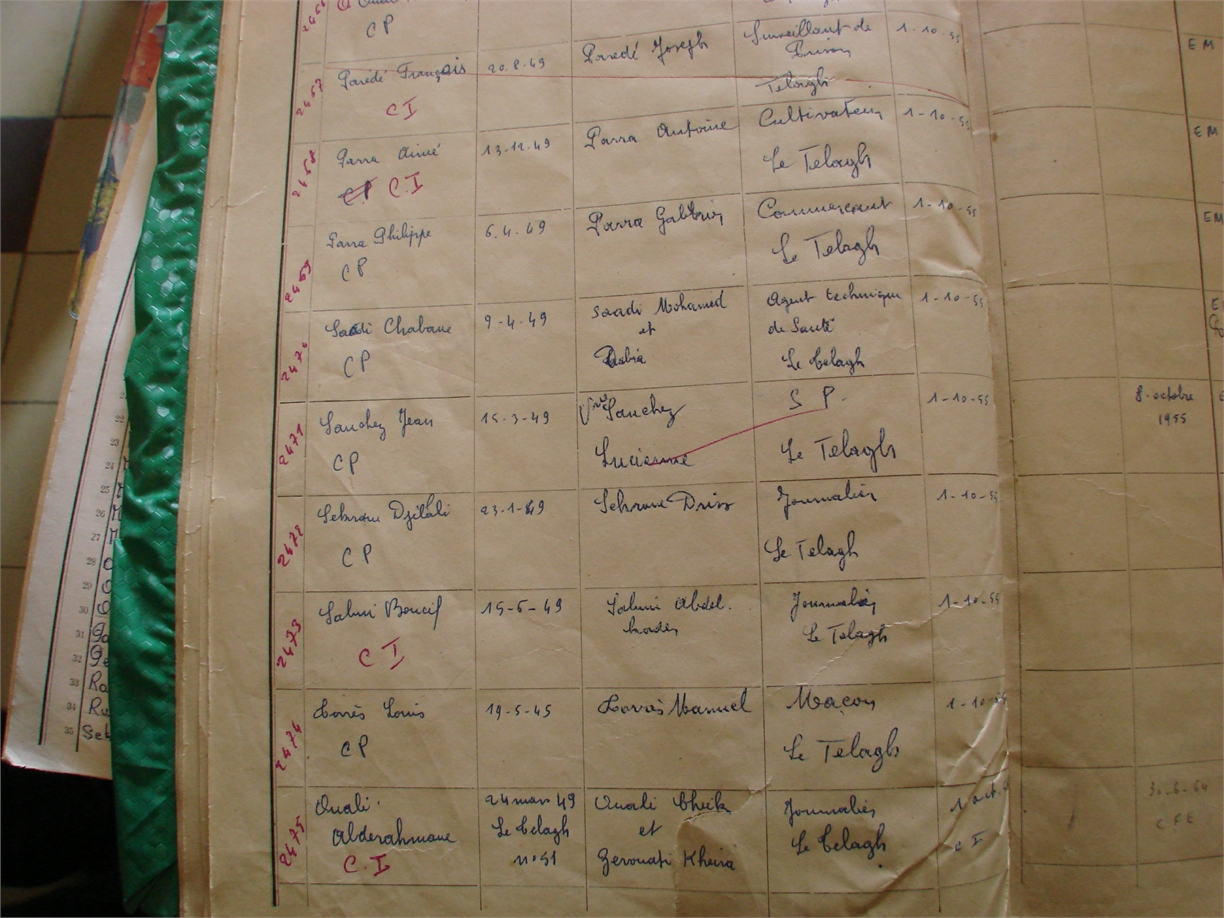 CP
2467
Paredé François
20.8.49
Paredé Joseph
Surveillant de
Prison
Telagh
1-10-55
EM
CI
2468
Parra Aimé
13-12-49
Parra Antoine
Cultivateur
Le Telagh
1-10-55
EM
CP CI
2469
Parra Philippe
6.4.49
Parra Gabriel
Commerçant
Le Telagh
1-10-55
EM
CP
2470
Saadi Chabane
9-4-49
Saadi Mohamed
et
Agent technique
de Santé
Le Telagh
1-10-55
CP
2471
Sanchez Jean
15-3-49
Vve Sanchez
Lucienne
S P.
Le Telagh
1-10-55
8-octobre
1955
CP
2472
Sekrane Djilali
23-1-49
Sekrane Driss
Journalier
Le Telagh
1-10-55
CP
2473
Salmi Boucif
15-6-49
Salmi Abdel.
kader
Journalier
Le Telagh
1-10-55
CI
2474
Torrès Louis
19-5-45
Torrès Manuel
Maçon
Le Telagh
1-10
CP
2475
Ouali
Abderahmane
C.I
24 mars 49
Le Telagh
n°51
Ouali Cheik
et
Gerouati Kheira
Journalier
Le Telagh
1 oct.
CI
CFE
23
24
25
26
27
28
29
30
31
32
33
34
35